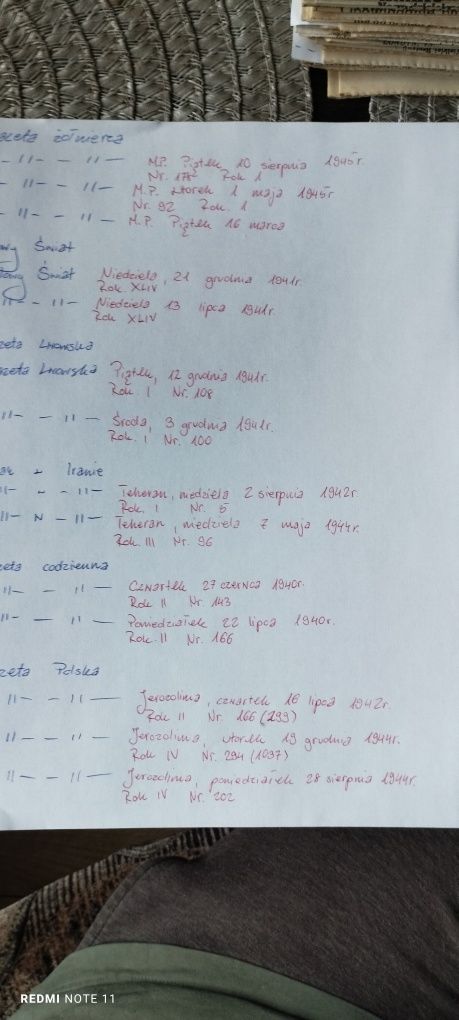 azeta żołnierza
- -11- - 11- M.P. Piątek 10 sierpnia 1945r.
Nr. Rok 1
- 11- - 11- M.P. wtorek 1 maja 1945r
Nr. 92 Rok. 1
- 11- - 11- M.P. Piątek 16 marca
owy Świat
Nowy Świat Niedziela, 21 grudnia 1941r.
Rok XLIV
11- - 11- Niedziela 13 lipca 1941r.
Rok XLIV
zeta Lwowska
azeta Lwowska Piątek, 12 grudnia 1941r.
Rok. I Nr. 108
11- - 11- Środa, 3 grudnia 1941r.
Rok. I Nr. 100
w Iranie
11- ~ - 11- Teheran, niedziela 2 sierpnia 1942r.
Rok. I Nr. 5
11- N - 11- Teheran, niedziela 7 maja 1944r.
Rok III Nr. 96
zeta codzienna
11- - 11- Czwartek 27 czerwca 1940r.
Rok II Nr. 143
11- - 11- Poniedziałek 22 lipca 1940r.
Rok. II Nr. 166
zeta Polska
11- - 11- Jerozolima, czwartek 16 lipca 1942r.
Rok II Nr. 166 (299)
11- - 11- Jerozolima, wtorek 19 grudnia 1944r.
Rok IV Nr. 294 (1037)
11- - 11- Jerozolima, poniedziałek 28 sierpnia 1944r.
Rok IV Nr. 202
REDMI NOTE 11